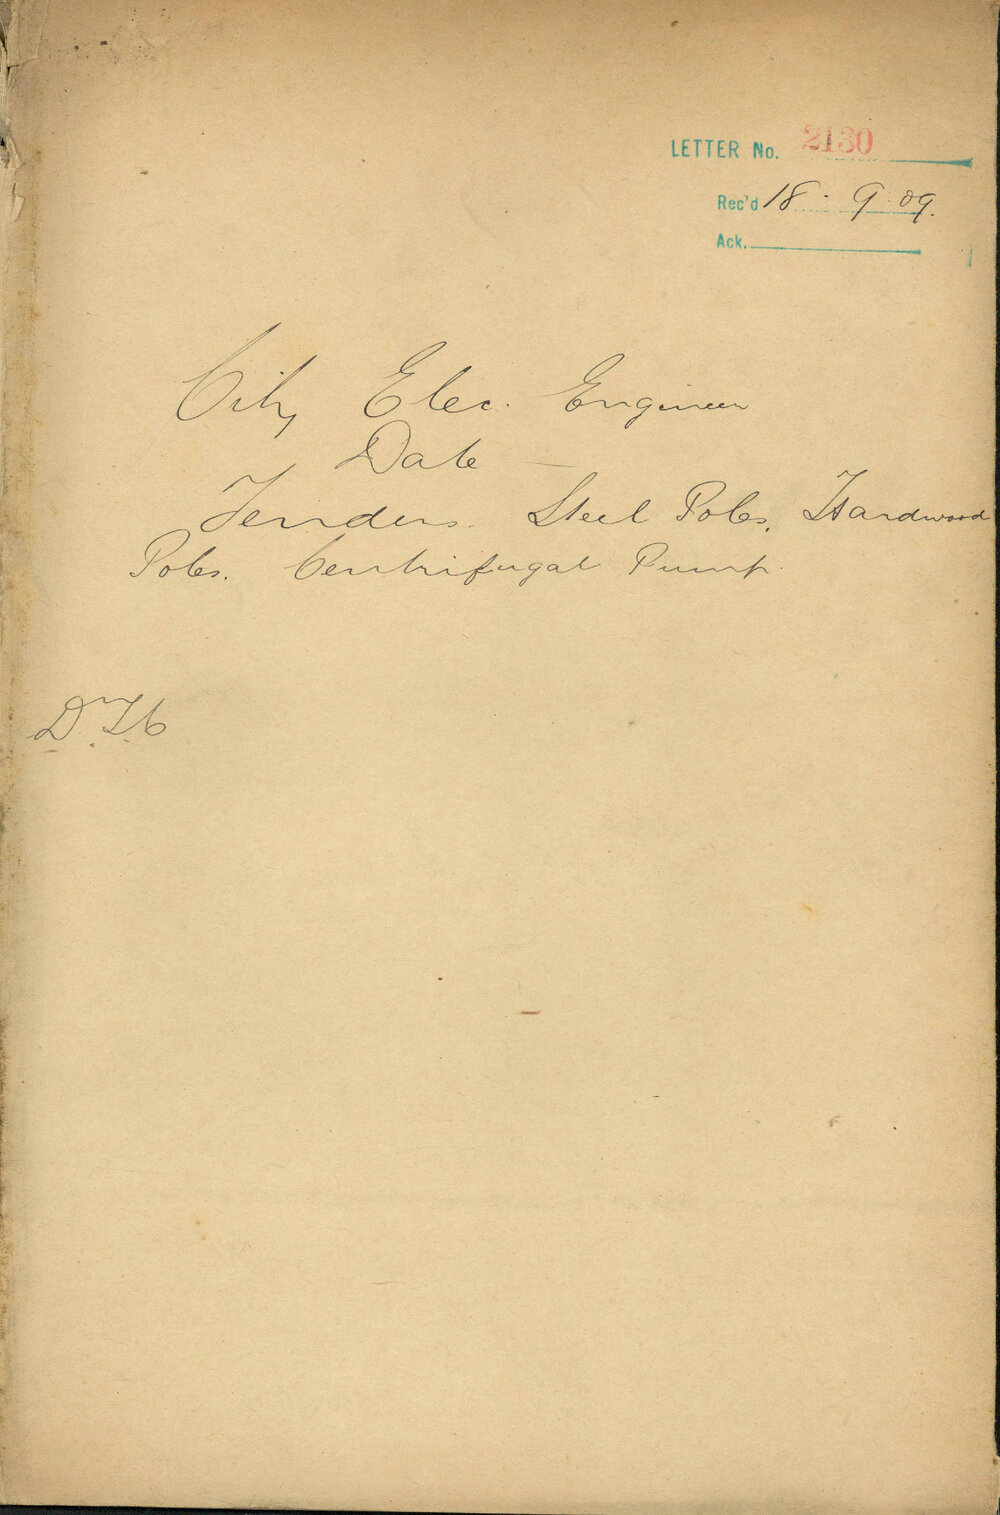 LETTER No. 2130
Rec'd 18 - 9 - 09.
Ack.
City Elec. Engineer
Date —
Tenders. Steel Poles, Hardwood
Poles. Centrifugal Pump.